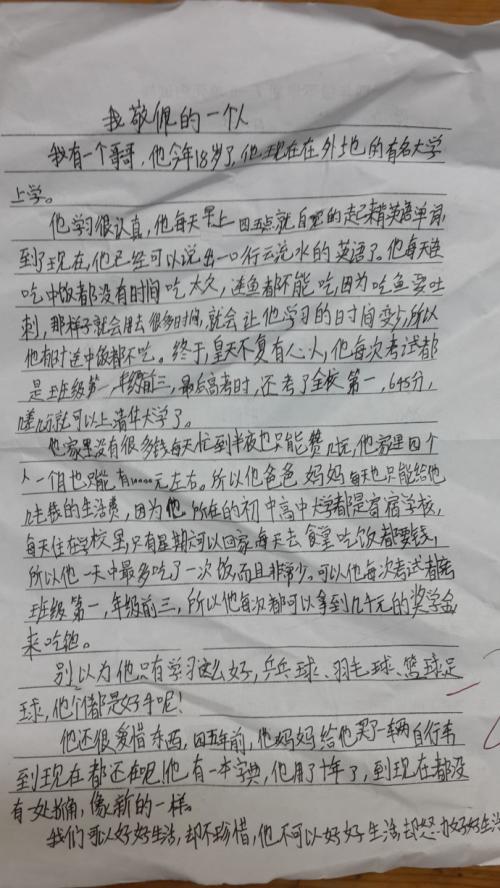 我敬佩的一个人
我有一个哥哥,他今年18岁了,他现在在外地的有名大学
上学。
他学习很认真,他每天早上四五点就自觉的起来背英语单词,
到了现在,他已经可以说出一口行云流水的英语了。他每天连
吃中饭都没有时间吃太久,连鱼都不能吃,因为吃鱼要吐
刺,那样子就会用去很多时间,就会让他学习的日时间变少,所以
他有时连中饭都不吃。终于,皇天不复有人心,他每次考试都
是班级第一,年级前三,最后高考时,还考了全校第一,645分,
差几分就可以上清华大学了。
他家里没有很多钱每天忙到半夜也只能赚几元,他家里四个
人一个月也只能有10000元左右。所以他爸爸妈妈每天也只能给他
几毛钱的生活费,因为他所在的初中高中大学都是寄宿学校,
每天住在学校里,只有星期六可以回家,每天去食堂吃饭都要钱,
所以他一天中最多吃了一次饭,而且非常少。可以他每次考试都是
班级第一,年级前三,所以他每次都可以拿到几千元的奖学金
来吃饭。
别以为他只有学习这么好,乒乓球、羽毛球、篮球足
球,他个个都是好手呢!
他还很爱惜东西,四五年前,他妈妈给他买了一辆自行车
到现在都还在呢!他有一本字典,他用了十年了,到现在都没
有一处捅,像新的一样。
我们可以好好生活,却不珍惜,他不可以好好生活却努力好好生活